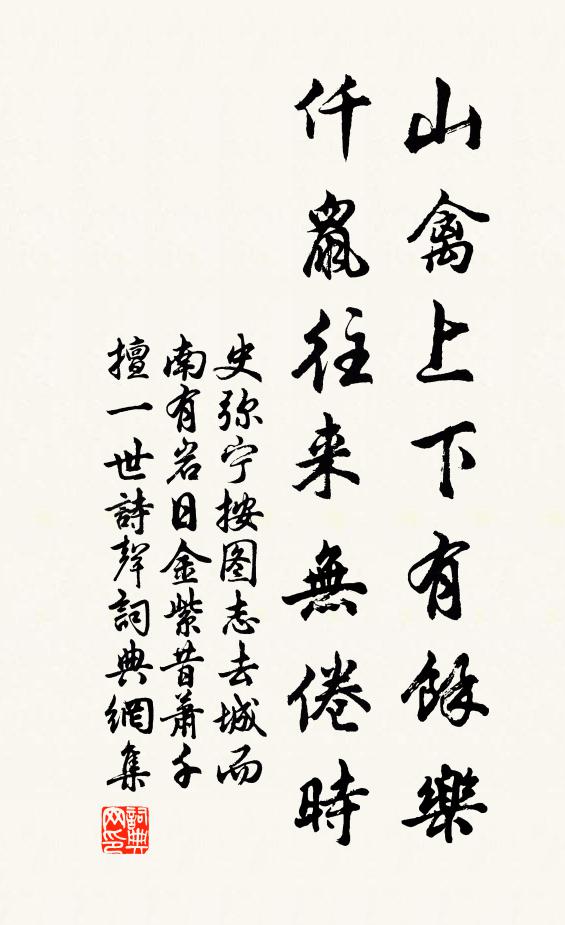 山禽上下有餘樂
仟鼠往来無倦時
史弥宁按图志去城而
南有岩日金紫昔萧千
擅一世詩聲詞典網集
詞典網印